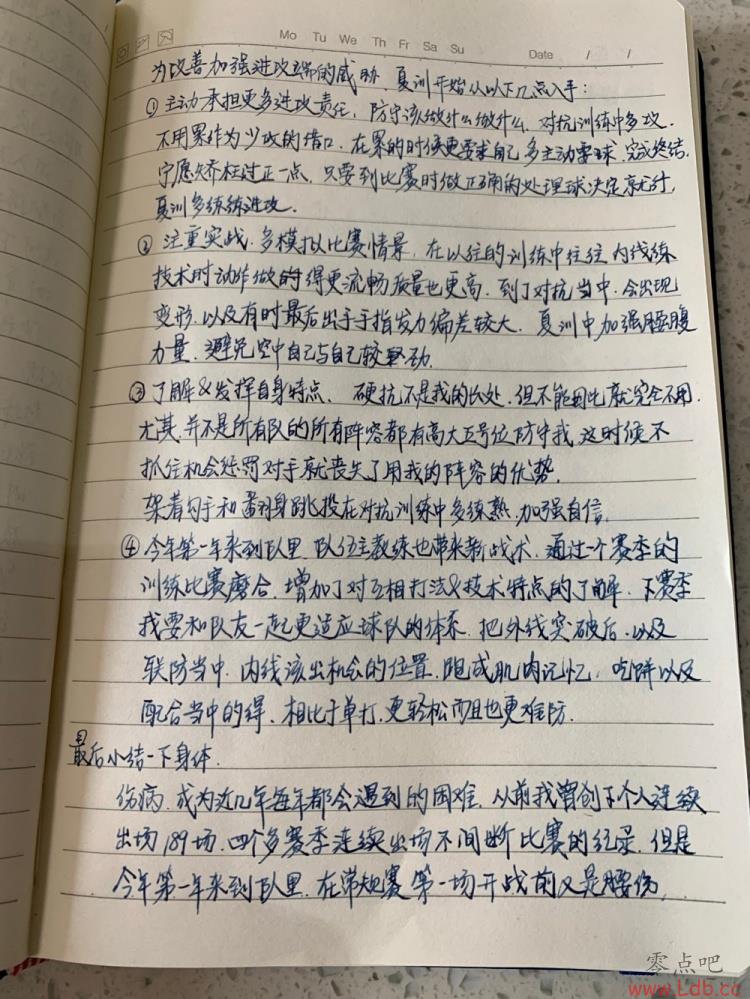 Mo Tu We Th Fr Sa Su Date / /
为改善加强进攻端的威胁，夏训开始从以下几点入手：
①主动承担更多进攻责任，防守该做什么做什么，对抗训练中多攻，
不用累作为少攻的借口，在累的时候更要求自己多主动要球，完成终结，
宁愿矫枉过正一点，只要到比赛时做正确的处理球决定就行，
夏训多练练进攻．
②注重实战，多模拟比赛情景，在以往的训练中往往内线练
技术时动作做的得更流畅质量也更高，到了对抗当中，会出现
变形，以及有时最后出手手指发力偏差较大，夏训中加强腰腹
力量，避免空中自己与自己较劲．
③了解&发挥自身特点，硬抗不是我的长处，但不能因此就完全不用，
尤其并不是所有队的所有阵容都有高大五号位防守我，这时候不
抓住机会惩罚对手就丧失了用我的阵容的优势．
架着勾手和翻身跳投在对抗训练中多练熟，加强自信．
④今年第一年来到队里，队伍主教练也带来新战术，通过一个赛季的
训练比赛磨合，增加了对互相打法&技术特点的了解，下赛季
我要和队友一起更适应球队的体系，把外线突破后，以及
联防当中，内线该出机会的位置，跑成肌肉记忆，吃饼以及
配合当中的得，相比于单打，更轻松而且也更难防．
最后小结一下身体．
伤病，成为近几年每年都会遇到的困难，从前我曾创下个人连续
出场189场，四个多赛季连续出场不间断比赛的纪录，但是
今年第一年来到队里，在常规赛第一场开战前又是腰伤，
零点吧
www.Ldb.cc